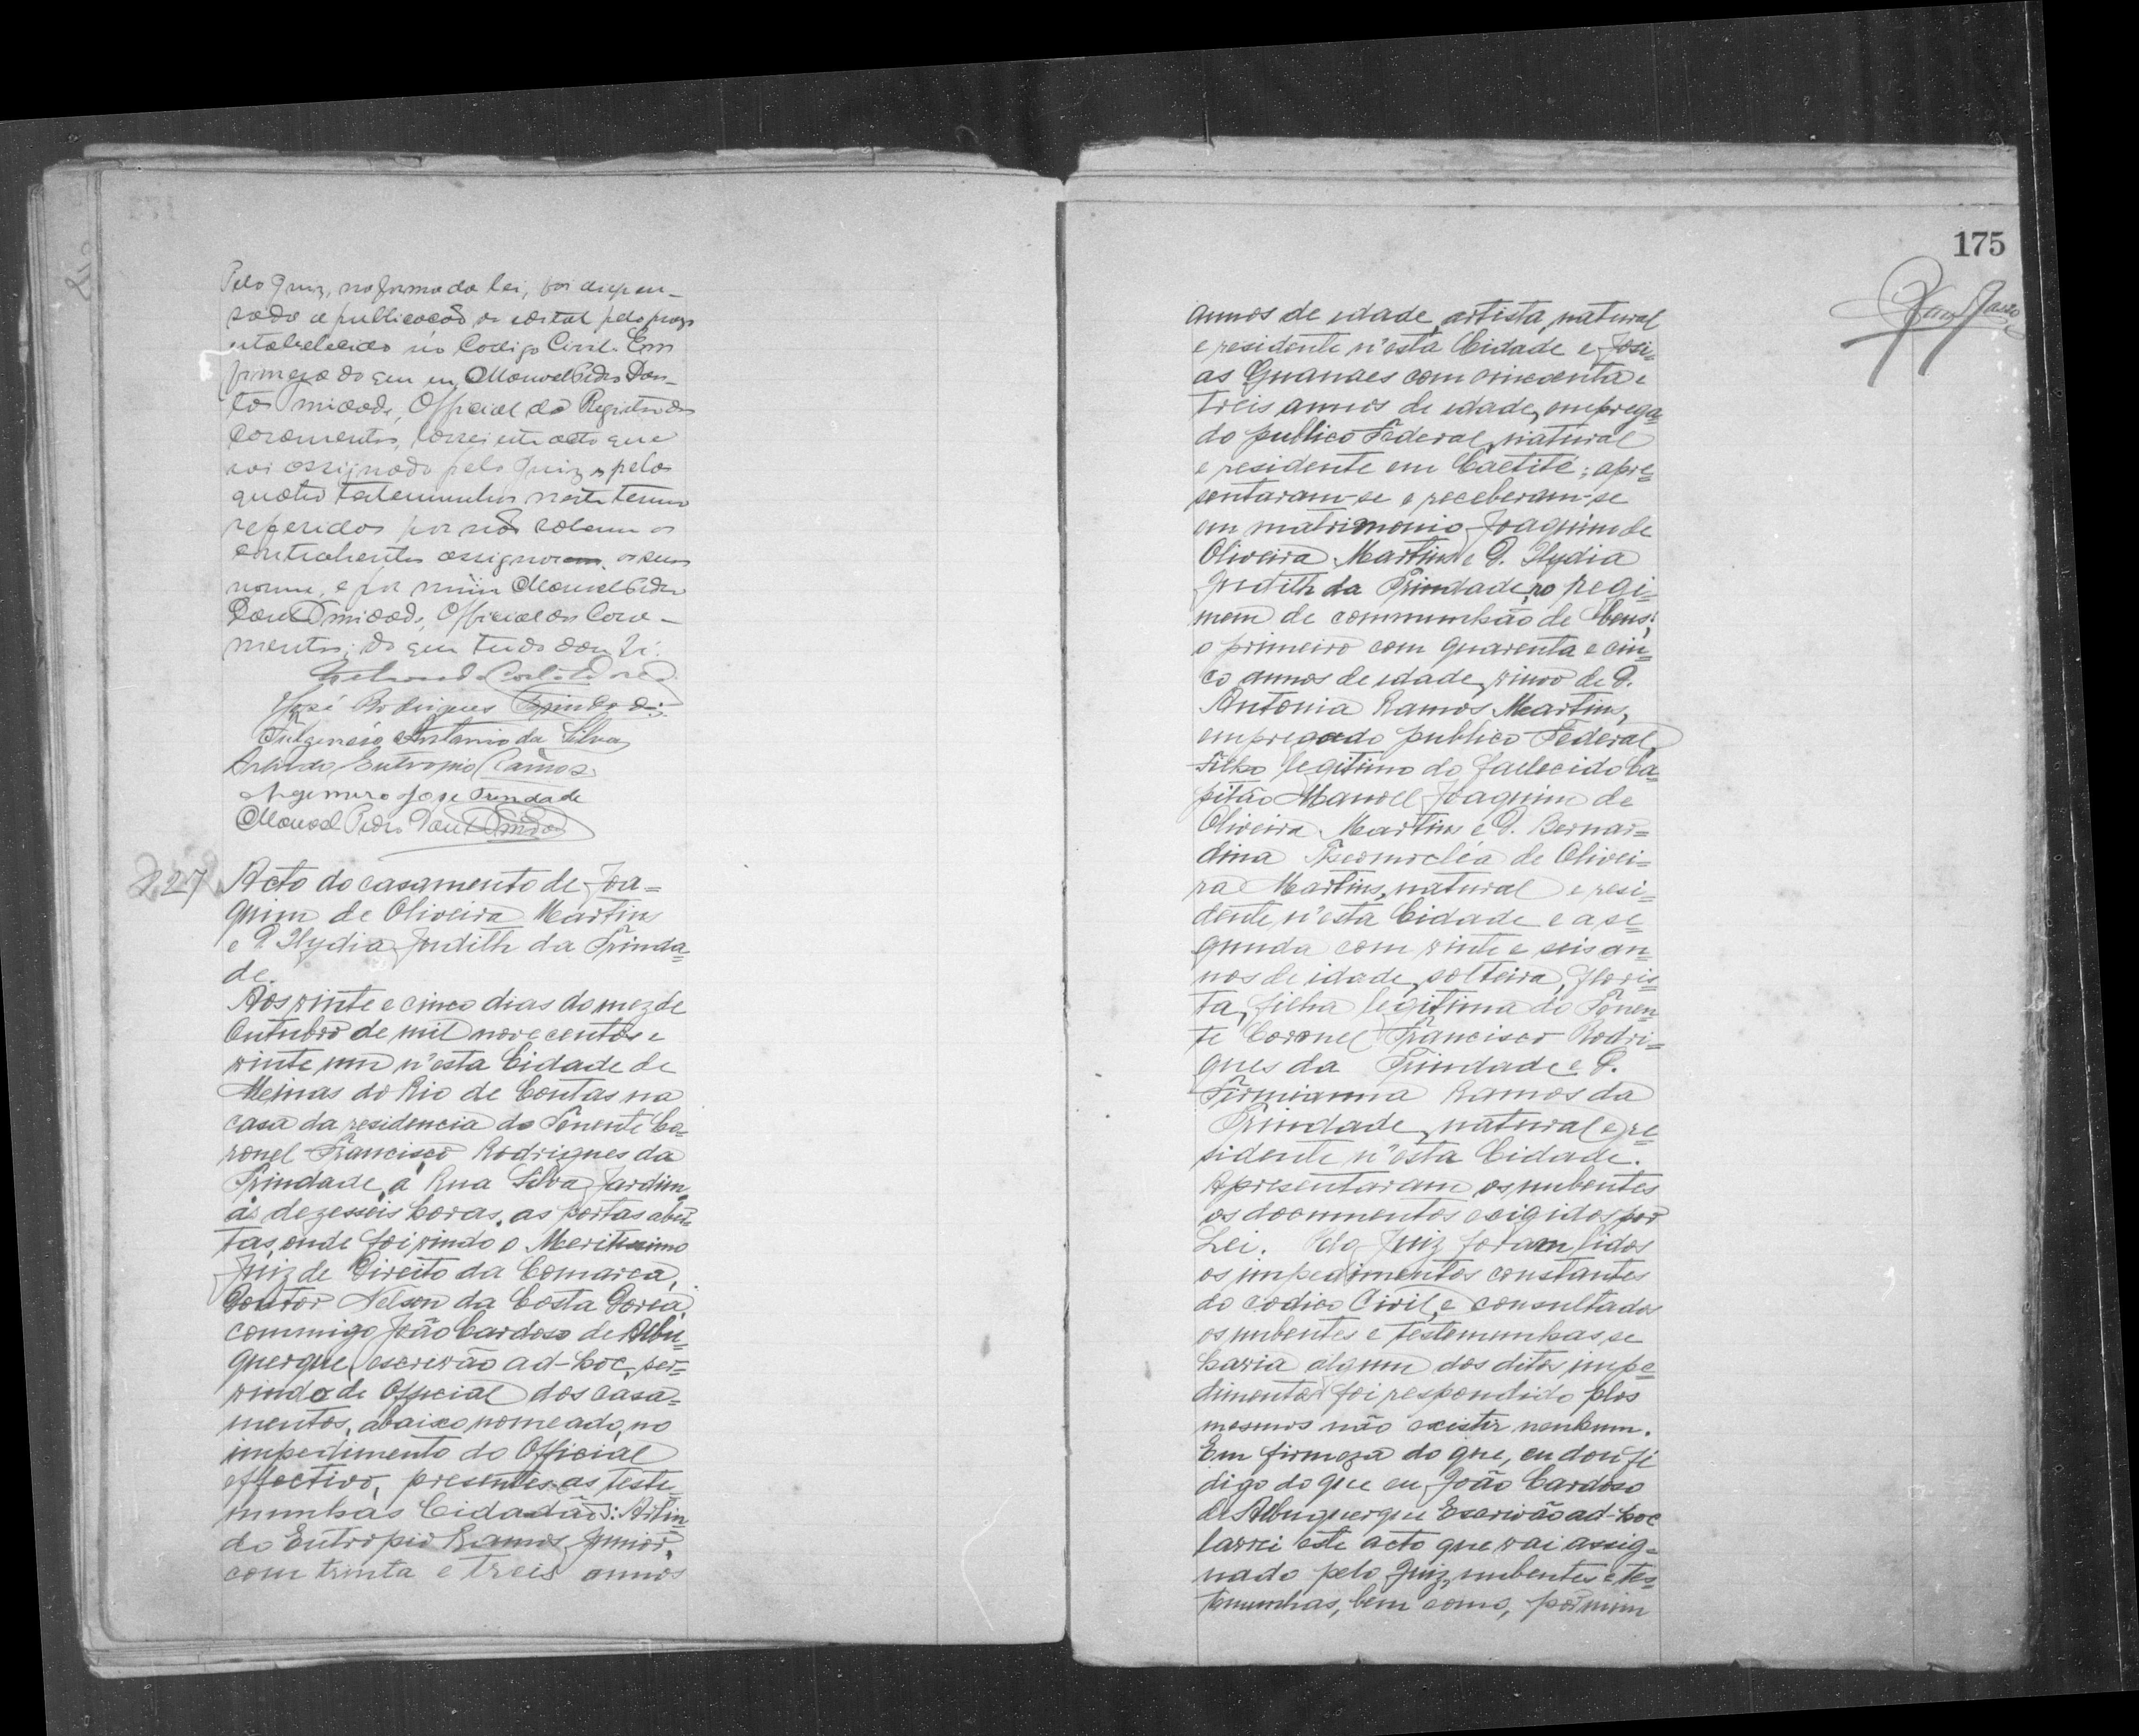 Pelo Juiz, na forma da lei, foi dispen-
sada a publicação do edital pelo prazo
estabelecido no Codigo Civil. Em
firmeza do que eu, Manoel Pedro Dan-
tas Official do Registro dos
Casamentos, lavrei este acto que
vai assignado pelo Juiz, pelas
quatro testemunhas neste termo
referidas por não saberem os
contrahentes assignarem os seus
nomes, e por mim Manoel Pedro
Official dos Casa-
mentos; do que tudo dou fé.
José Rodrigues Trindade
Fulgencio Antonio da Silva
Arlindo Eutropio Ramos
Argemiro José Trindade
Manoel Pedro
N. 27
Acto do casamento de Joa=
quim de Oliveira Martins
e D. Ilydia Judith da Trinda=
de.
Aos vinte e cinco dias do mez de
Outubro de mil nove centos e
vinte um n'esta Cidade de
Meinas do Rio de Contas na
casa da residencia do Tenente Co=
ronel Francisco Rodrigues da
Trindade, á Rua Silva Jardim,
ás dezesseis horas, as portas aber=
tas, onde foi vindo o Meritissimo
Juiz de Direito da Comarca,
Doutor Nelson da Costa Doria,
commigo João Cardoso de Albu=
querque, escrivão ad-hoc, ser=
vindo de Official dos casa=
mentos, abaixo nomeado, no
impedimento do Official
effectivo, presentes as teste=
munhas Cidadãos: Arlin=
do Eutropio Ramos Junior,
com trinta e treis annos
175
annos de idade, artista, natural
e residente n'esta Cidade e Josi=
as Guanaes com cincoenta e
treis annos de idade, emprega=
do publico Federal, natural
e residente em Caetité; apre=
sentaram-se e receberam-se
em matrimonio Joaquim de
Oliveira Martins e D. Ilydia
Judith da Trindade, no regi=
mem de communhão de bens;
o primeiro com quarenta e cin=
co annos de idade, viuvo de D.
Antonia Ramos Martins,
empregado publico Federal,
Filho legitimo do fallecido Ca=
pitão Manoel Joaquim de
Oliveira Martins e D. Bernar=
dina Themocléa de Olivei=
ra Martins, natural e resi=
dente n'esta Cidade e a se=
gunda com vinte e seis an=
nos de idade, solteira, floris=
ta, filha legitima do Tenen=
te Coronel Francisco Rodri=
gues da Trindade e D.
Firmianna Ramos da
Trindade, natural e re=
sidente n'esta Cidade.
Apresentaram os nubentes
os documentos exigidos por
Lei. Pelo Juiz foram lidos
os impedimentos constantes
do codico Civil, e consultados
os nubentes e testemunhas se
havia algum dos ditos impe=
dimentos foi respondido plos
mesmos não existir nenhum.
Em firmeza do que, eu dou fé
digo do que eu João Cardoso
de Albuquerque Escrivão ad-hoc
lavrei este acto que vai assig=
nado pelo Juiz, nubentes e tes=
temunhas, bem como, por mim